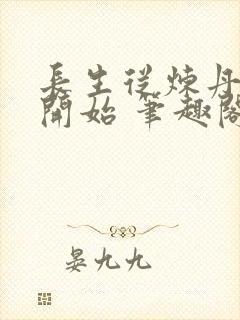 長生從煉丹
開始 筆趣閣
晏九九